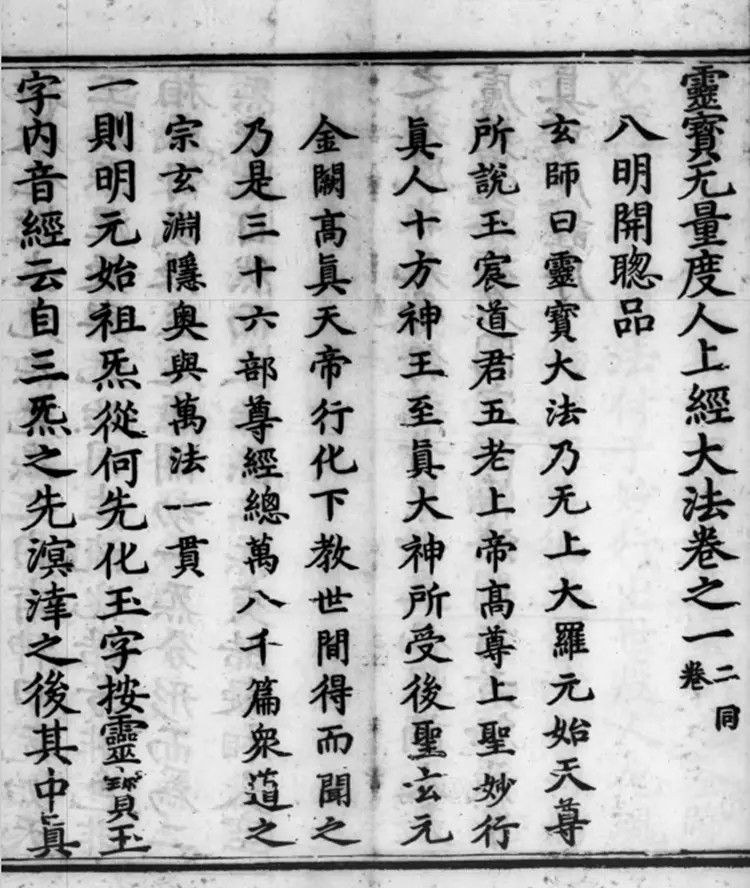 靈寶无量度人上經大法卷之一 二同卷
八明開聰品
玄師曰靈寶大法乃无上大羅元始天尊
所說玉宸道君五老上帝高尊上聖妙行
眞人十方神王至眞大神所受後聖玄元
金闕高眞天帝行化下教世間得而聞之
乃是三十六部尊經總萬八千篇衆道之
宗玄淵隱奥與萬法一貫
一則明元始祖炁從何先化玉字按靈寶玉
字内音經云自三炁之先溟涬之後其中眞